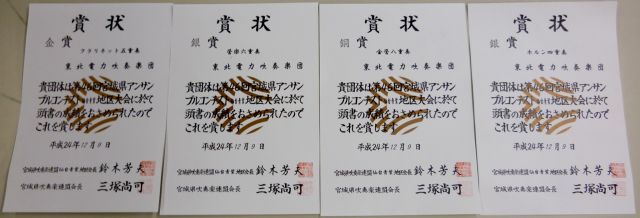 賞状
金賞
クラリネット五重奏
東北電力吹奏楽団
貴団体は第46回宮城県アンサン
ブルコンテスト地区大会に於て
頭書の成績をおさめられたので
これを賞します
平成24年12月9日
宮城県吹奏楽連盟仙台青葉地区会長 鈴木芳夫
宮城県吹奏楽連盟会長 三塚尚可
賞状
銀賞
管楽六重奏
東北電力吹奏楽団
貴団体は第46回宮城県アンサン
ブルコンテスト地区大会に於て
頭書の成績をおさめられたので
これを賞します
平成24年12月9日
宮城県吹奏楽連盟仙台青葉地区会長 鈴木芳夫
宮城県吹奏楽連盟会長 三塚尚可
賞状
銅賞
金管八重奏
東北電力吹奏楽団
貴団体は第46回宮城県アンサン
ブルコンテスト地区大会に於て
頭書の成績をおさめられたので
これを賞します
平成24年12月9日
宮城県吹奏楽連盟仙台青葉地区会長 鈴木芳夫
宮城県吹奏楽連盟会長 三塚尚可
賞状
銀賞
ホルン四重奏
東北電力吹奏楽団
貴団体は第46回宮城県アンサン
ブルコンテスト地区大会に於て
頭書の成績をおさめられたので
これを賞します
平成24年12月9日
宮城県吹奏楽連盟仙台青葉地区会長 鈴木芳夫
宮城県吹奏楽連盟会長 三塚尚可